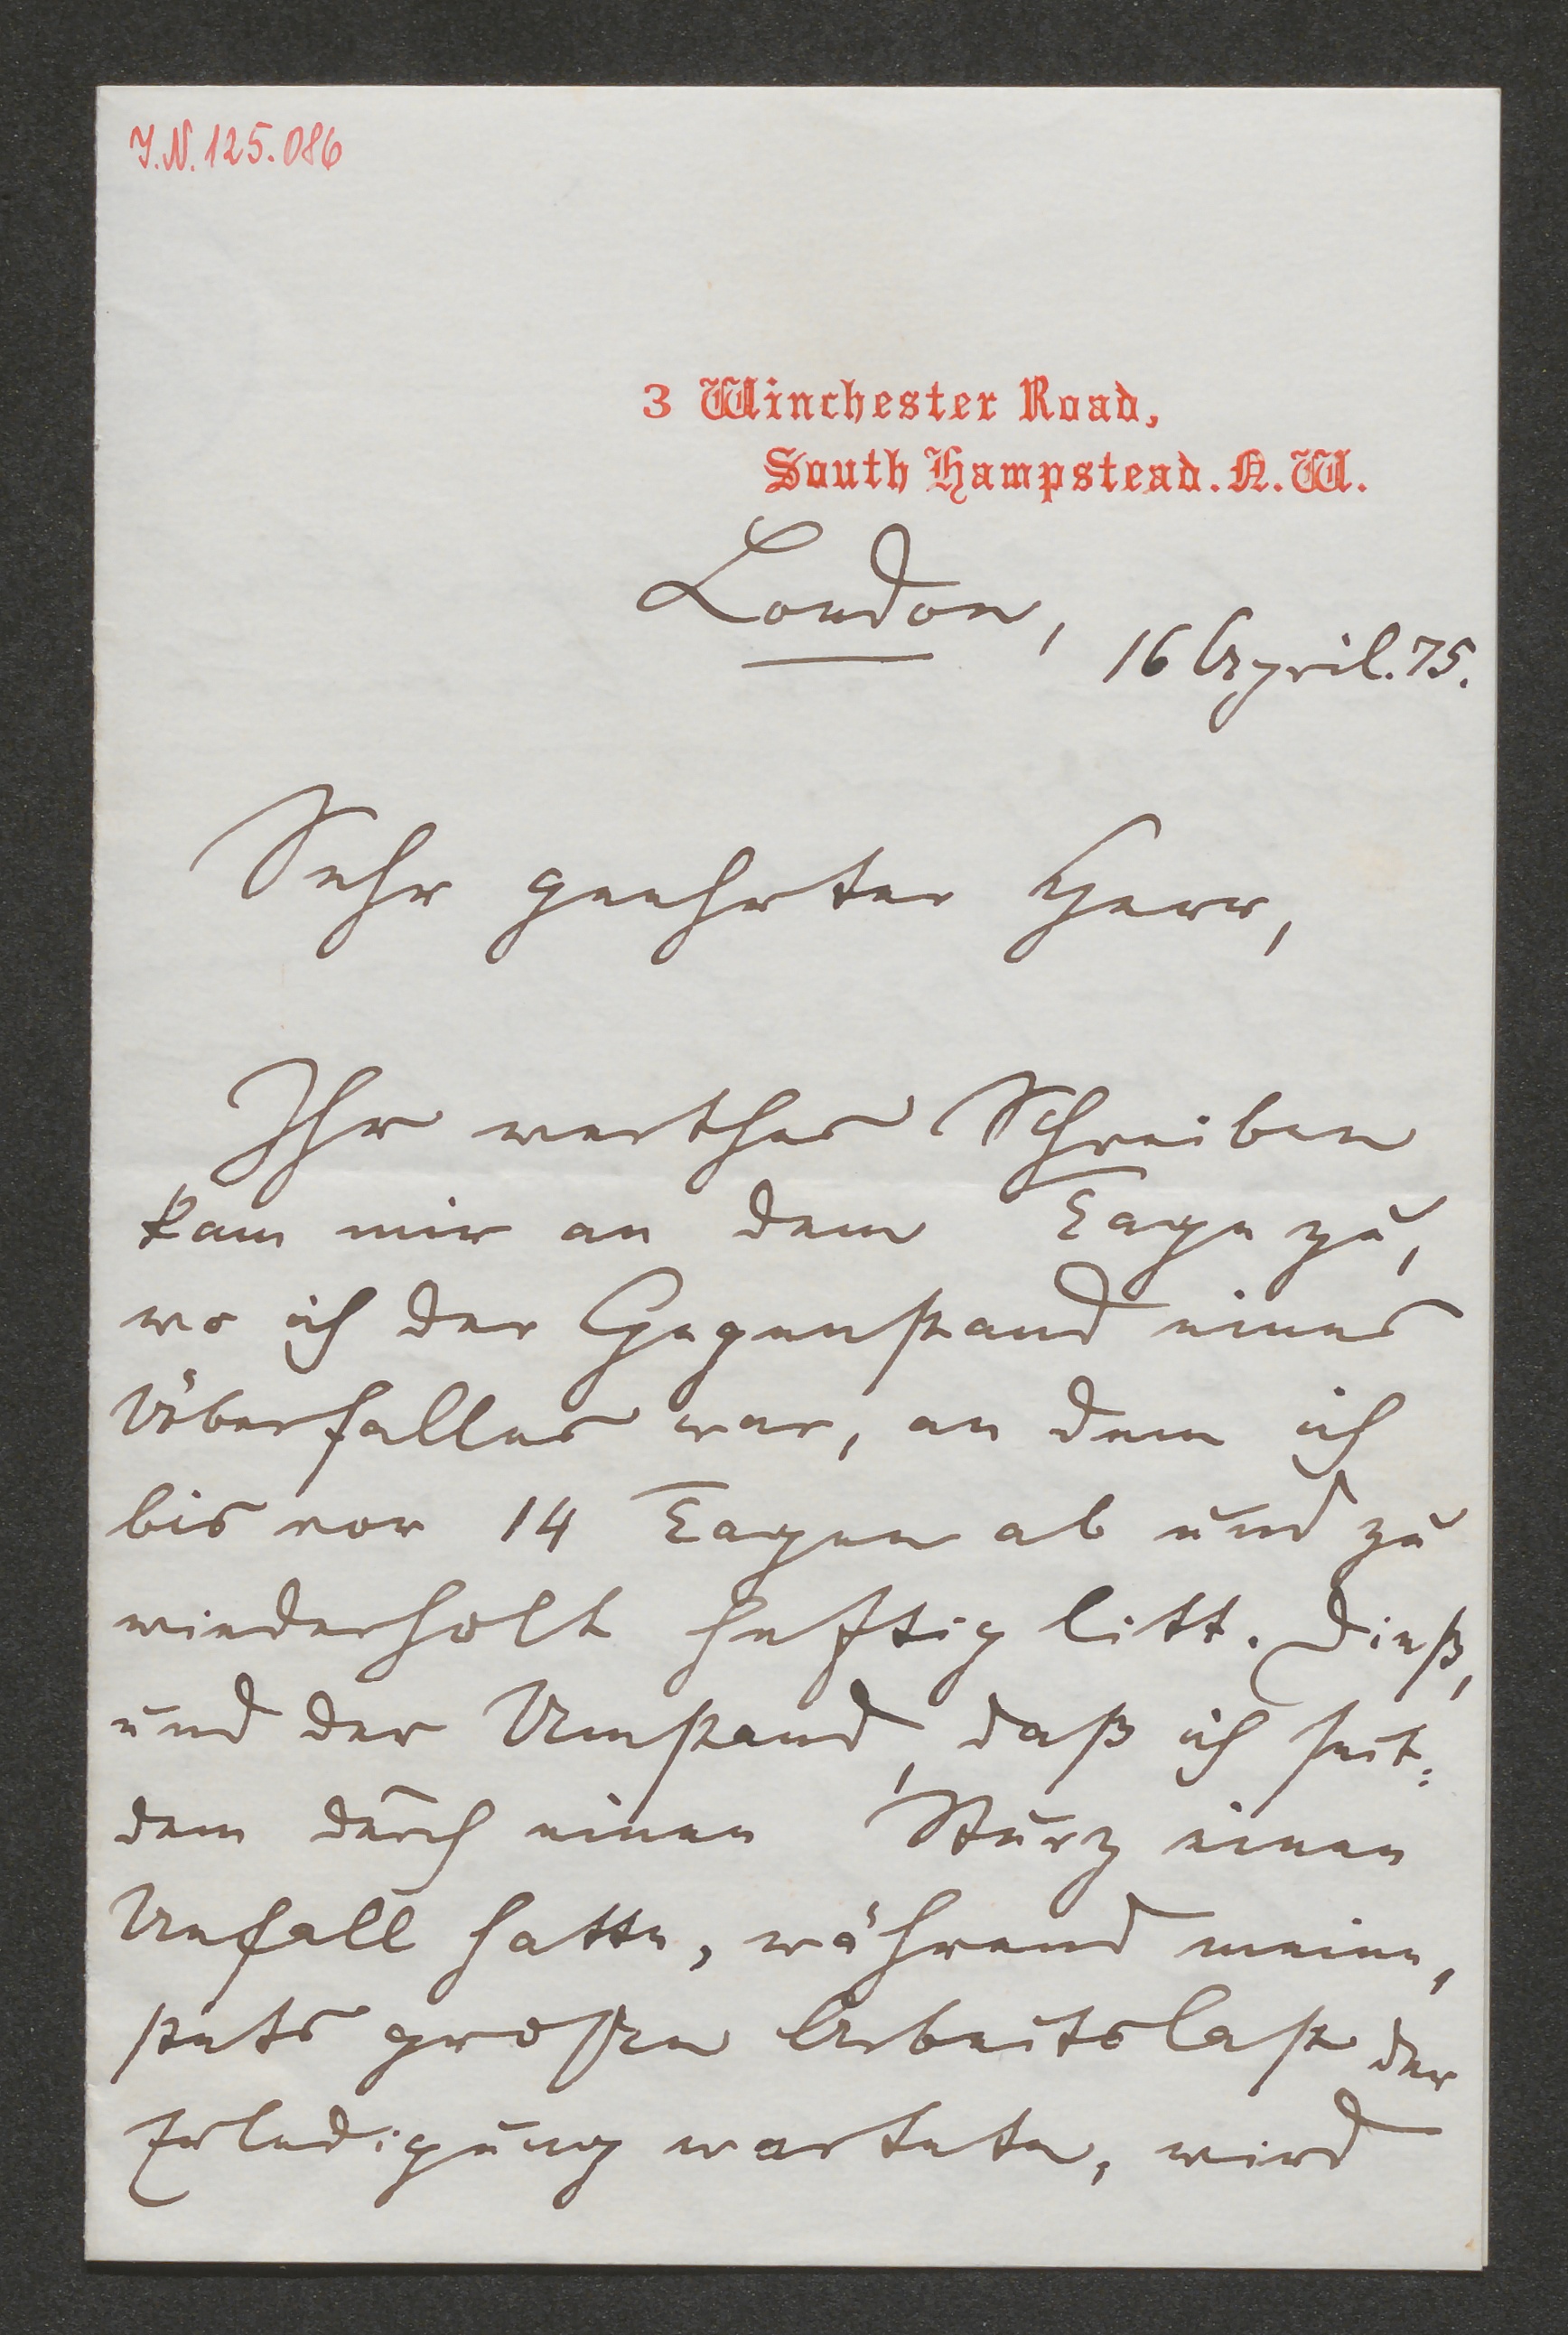 J.N. 125.086
3 Winchester Road,
South Hampstead. N. W.
London, 16 April. 75.
Sehr geehrter Herr,
Ihr werthes Schreiben
kam mir an dem Tage zu,
wo ich der Gegenstand eines
Überfalles war, an dem ich
bis vor 14 Tagen ab und zu
wiederholt heftig litt. Dieß,
und der Umstand, daß ich seit:
dem durch einen Sturz einen
Unfall hatte, während meine,
stets großen Arbeitslast der
Erledigung wartete, wird